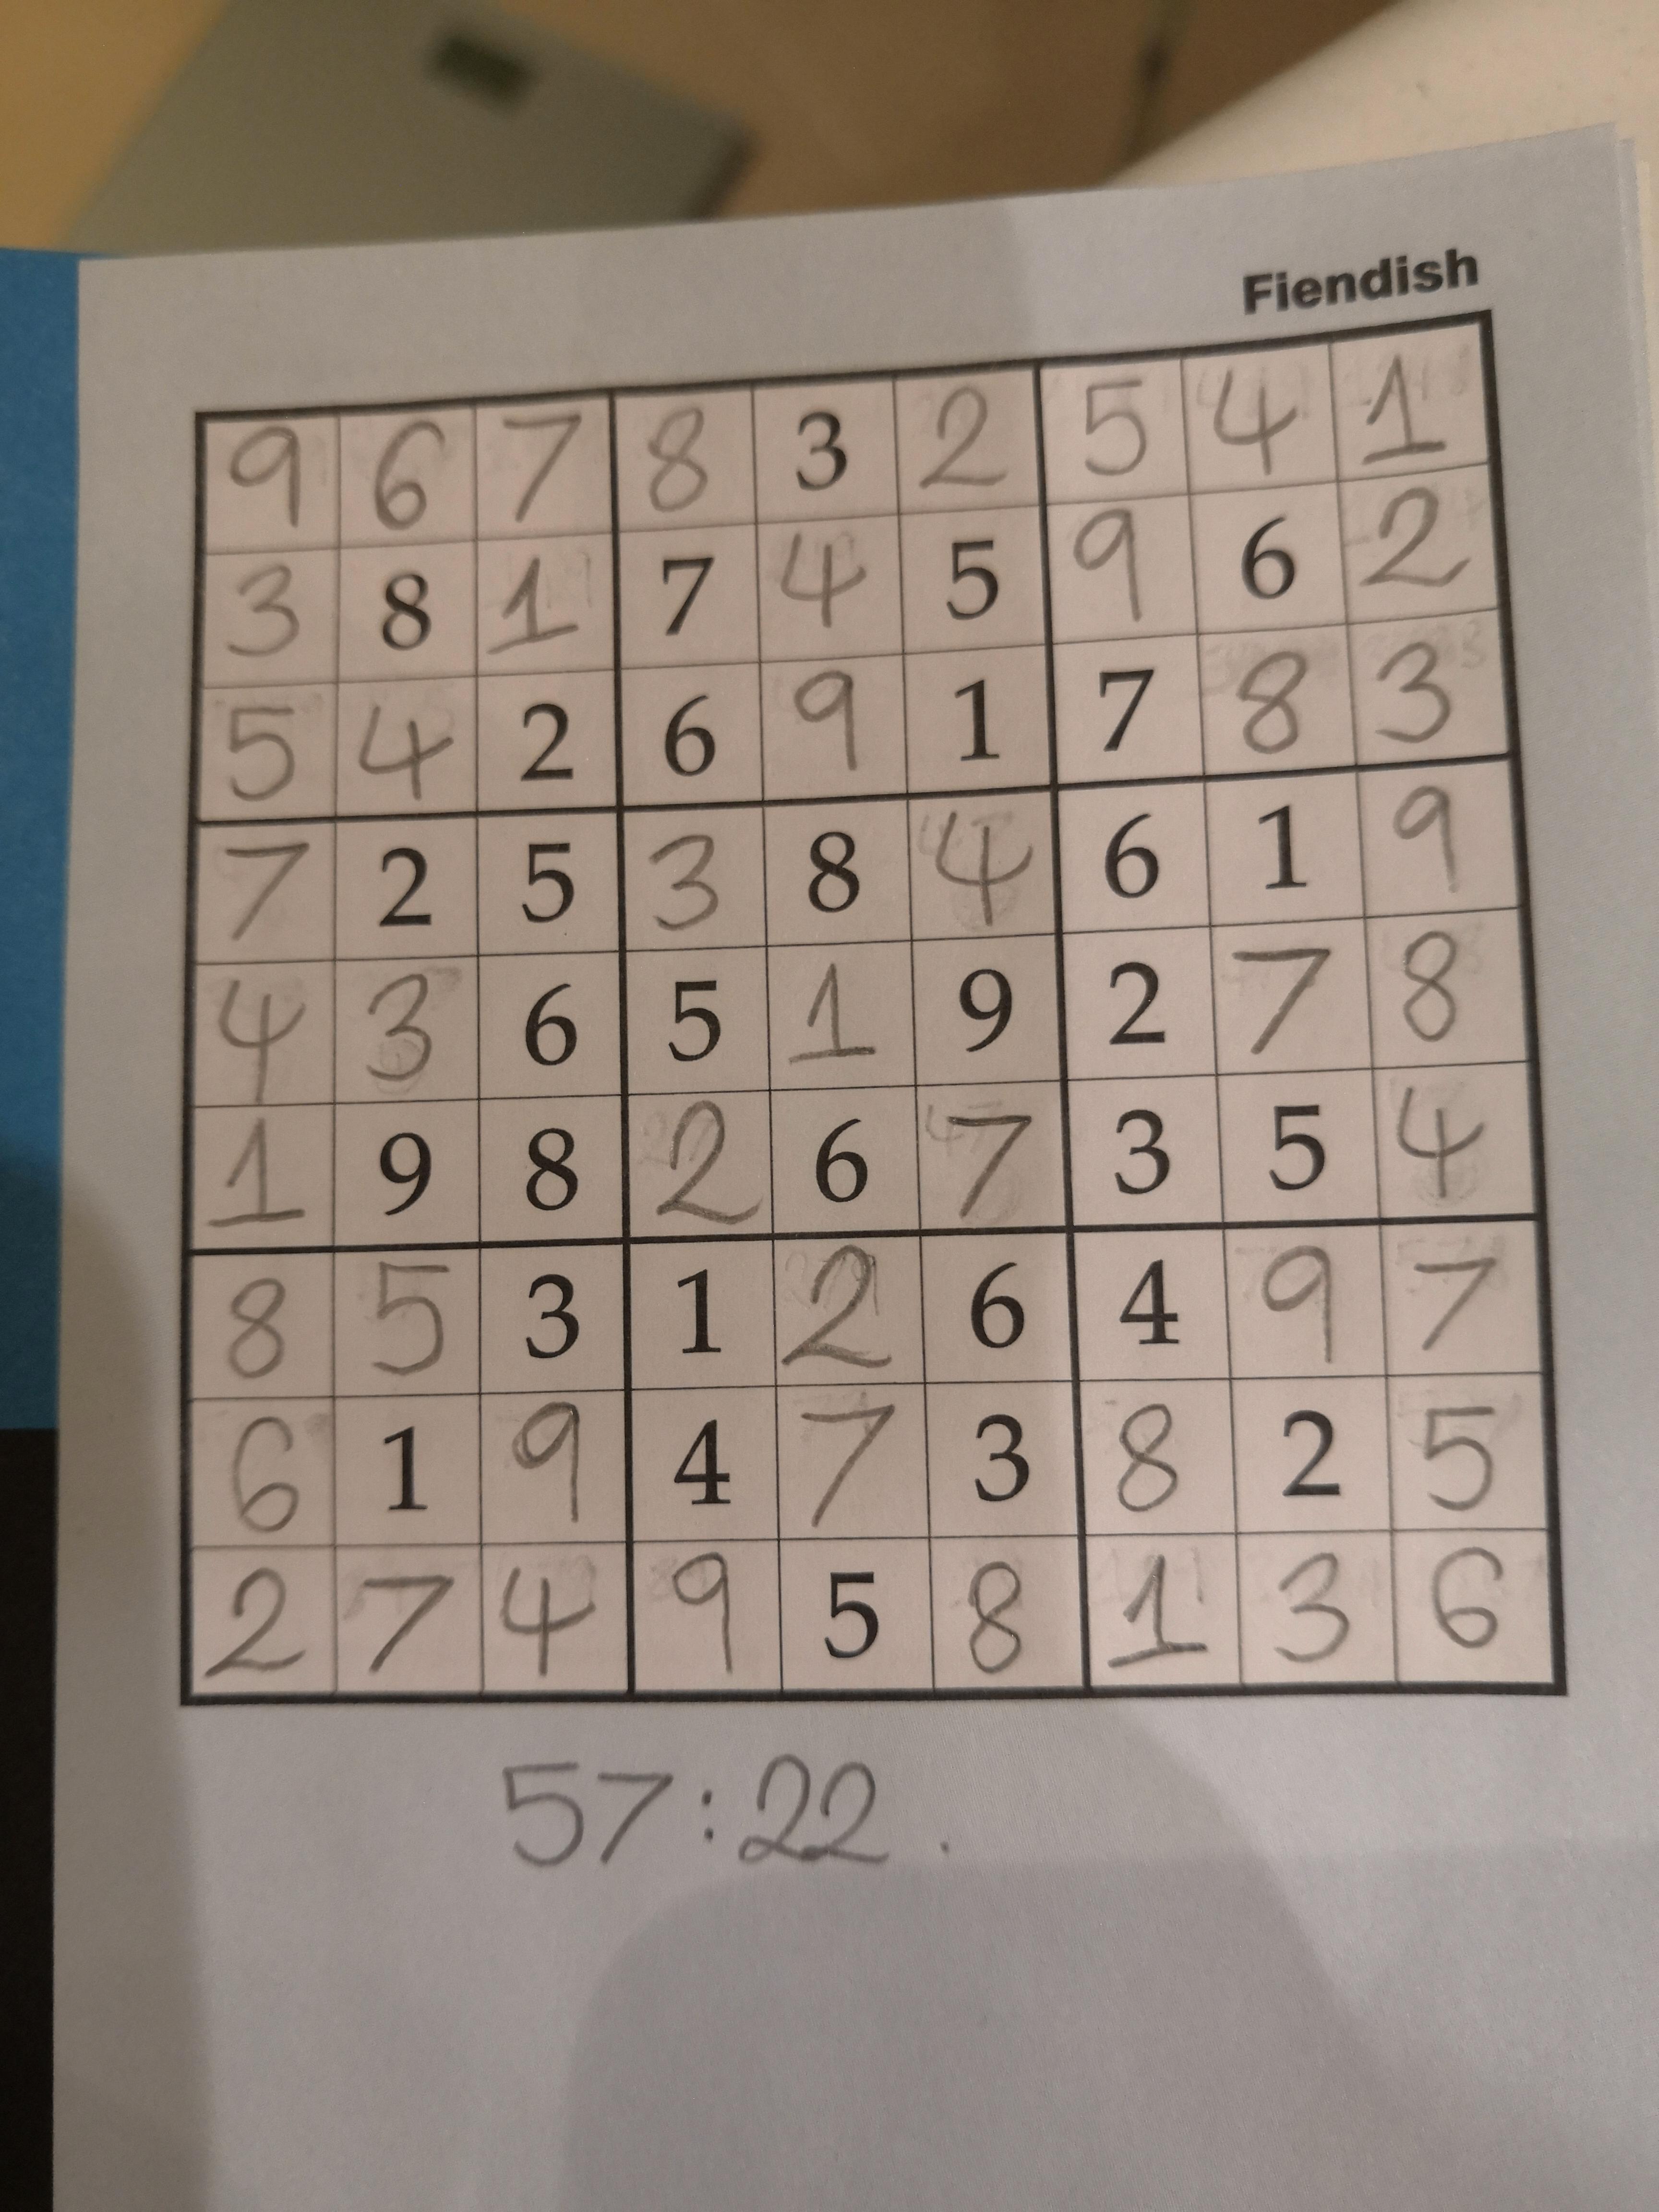 Fiendish
9 6 7 8 3 2 5 4 1
3 8 1 7 4 5 9 6 2
5 4 2 6 9 1 7 8 3
7 2 5 3 8 4 6 1 9
4 3 6 5 1 9 2 7 8
1 9 8 2 6 7 3 5 4
8 5 3 1 2 6 4 9 7
6 1 9 4 7 3 8 2 5
2 7 4 9 5 8 1 3 6
57:22.